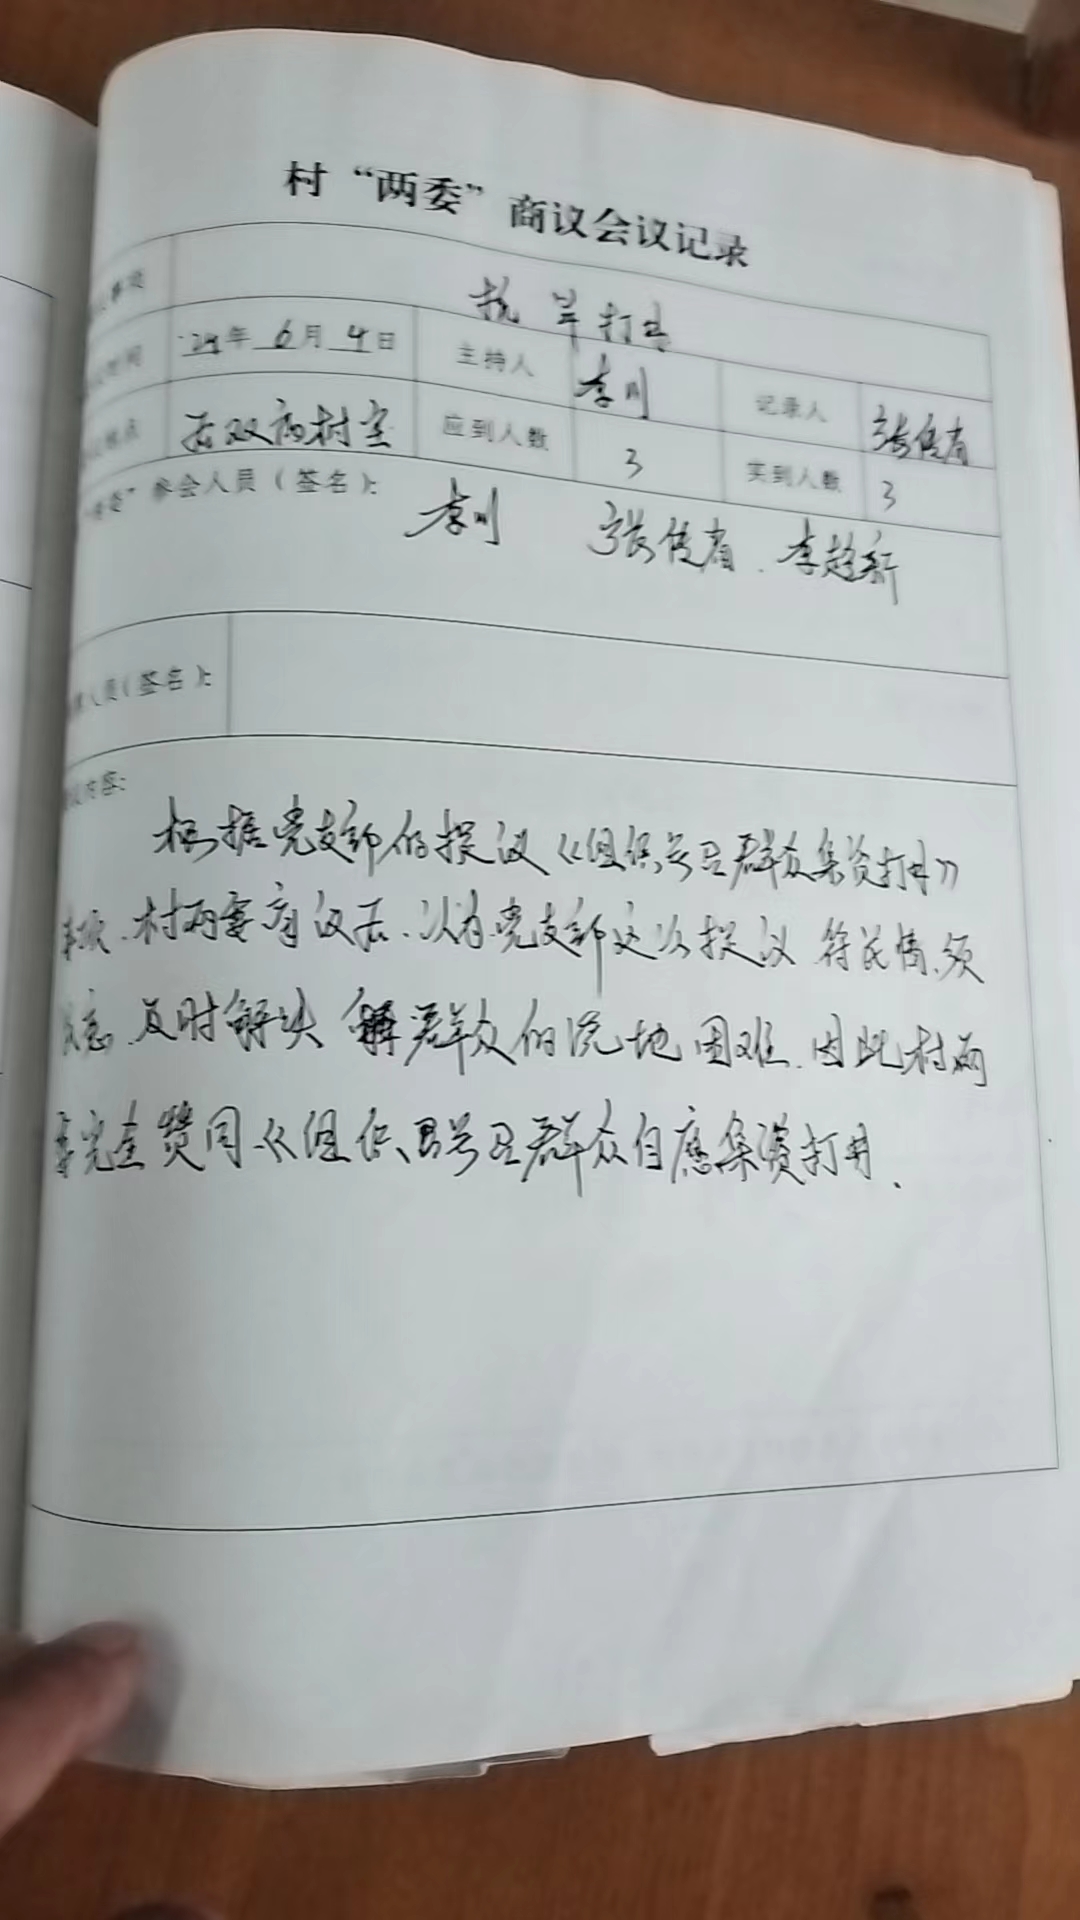 村“两委”商议会议记录
事项 抗旱打井
时间 24年6月4日 主持人 李川 记录人 张传有
地点 后双庙村室 应到人数 3 实到人数 3
“两委”参会人员（签名）： 李川 张传有、李超新
人员（签名）：
内容：
根据党支部的提议《组织号召群众集资打井》
事项、村两委商议后、认为党支部这次提议符民情、须
民意、及时解决 解群众的浇地困难、因此村两
委完全赞同《组织号召群众自愿集资打井、